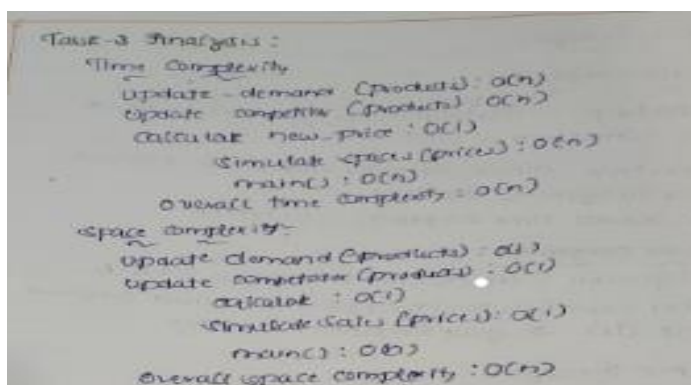 Task-3 Analysis:
Time Complexity
update-demand (products): O(n)
update competitor (products): O(n)
calculate new-price: O(1)
Simulate (prices): O(n)
main(): O(n)
Overall time complexity: O(n)
Space complexity:
update demand (products): O(1)
update competitor (products): O(1)
calculate: O(1)
Simulate sales (prices): O(1)
main(): O(n)
Overall space complexity: O(n)